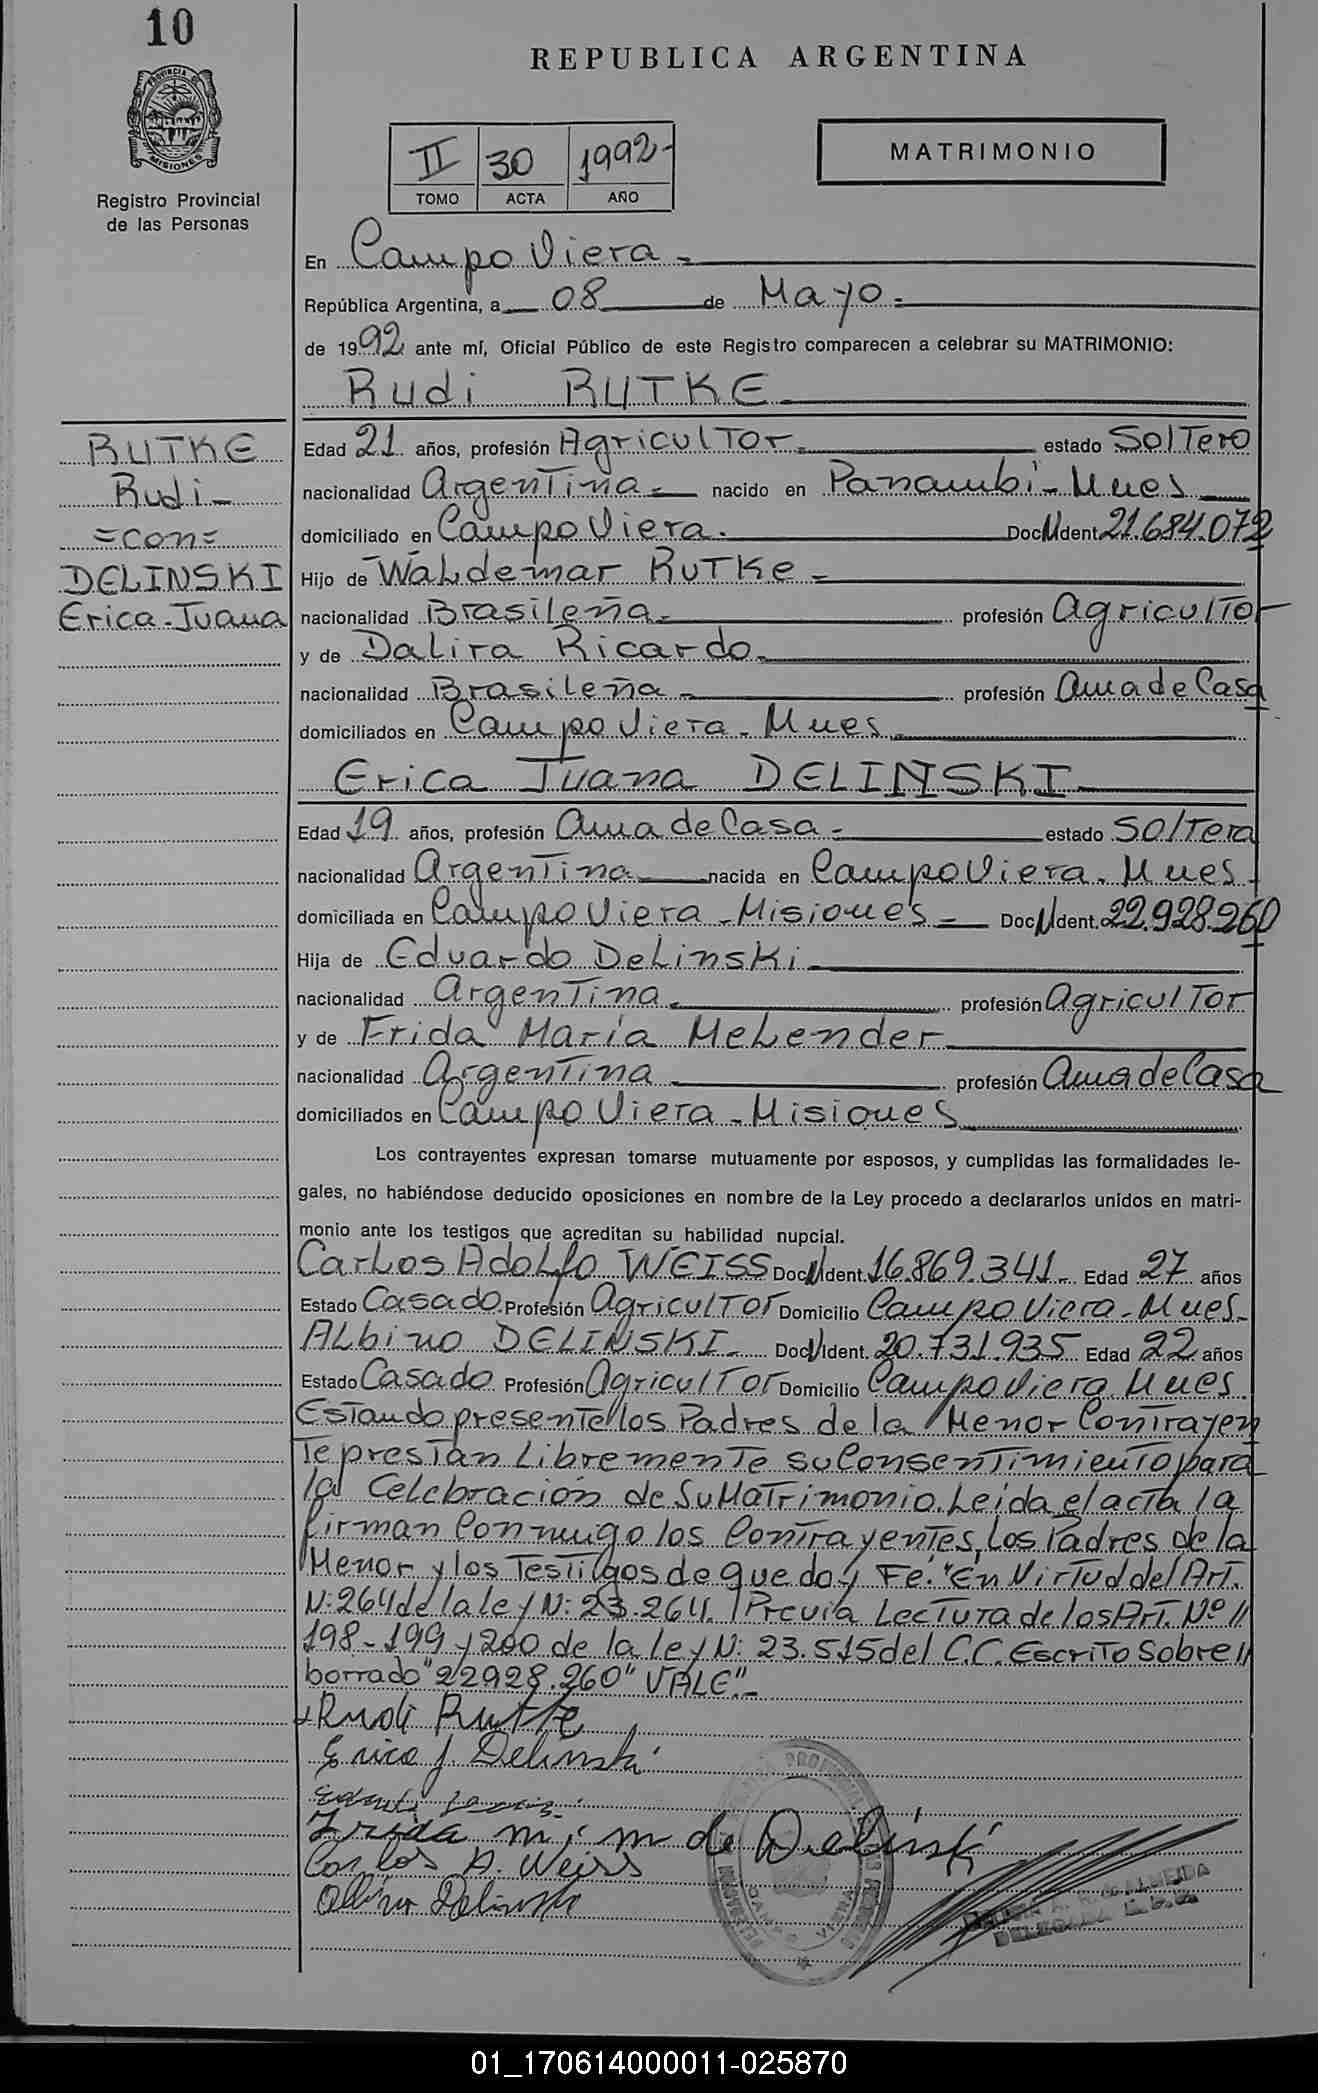 10
PROVINCIA DE
MISIONES
Registro Provincial
de las Personas
REPUBLICA ARGENTINA
II 30 1992-
TOMO ACTA AÑO
MATRIMONIO
En Campo Viera -
República Argentina, a 08 de Mayo -
de 1992 ante mí, Oficial Público de este Registro comparecen a celebrar su MATRIMONIO:
Rudi RUTKE
RUTKE
Rudi-
=con=
DELINSKI
Erica-Juana
Edad 21 años, profesión Agricultor - estado Soltero
nacionalidad Argentina - nacido en Panambi - Mnes
domiciliado en Campo Viera - Doc N Ident. 21.684.072
Hijo de Waldemar Rutke -
nacionalidad Brasileña - profesión Agricultor
y de Dalira Ricardo -
nacionalidad Brasileña - profesión Ama de Casa
domiciliados en Campo Viera - Mnes -
Erica Juana DELINSKI
Edad 19 años, profesión Ama de Casa - estado Soltera
nacionalidad Argentina nacida en Campo Viera - Mnes -
domiciliada en Campo Viera - Misiones - Doc N Ident. 22.928.260
Hija de Eduardo Delinski
nacionalidad Argentina - profesión Agricultor
y de Frida María Melender
nacionalidad Argentina profesión Ama de Casa
domiciliados en Campo Viera - Misiones
Los contrayentes expresan tomarse mutuamente por esposos, y cumplidas las formalidades le-
gales, no habiéndose deducido oposiciones en nombre de la Ley procedo a declararlos unidos en matri-
monio ante los testigos que acreditan su habilidad nupcial.
Carlos Adolfo WEISS Doc N Ident. 16.869.341 - Edad 27 años
Estado Casado Profesión Agricultor Domicilio Campo Viera - Mnes -
Albino DELINSKI - Doc N Ident. 20.731.935 Edad 22 años
Estado Casado Profesión Agricultor Domicilio Campo Viera Mnes
Estando presente los Padres de la Menor Contrayen
te prestan Libremente su Consentimiento para
la Celebración de su Matrimonio. Leida el acta la
firman Conmigo los Contrayentes, Los Padres de la
Menor y los Testigos de que doy Fé. "En Virtud del Art.
N: 264 de la ley N: 23.264. Previa Lectura de los Art. Nº //
198-199 y 200 de la ley N: 23.515 del C.C. Escrito sobre //
borrado "22928.260" VALE"-
Rudi Rutke
Erica J. Delinski
Frida m. m de Delinski
Carlos A. Weiss
Albino Delinski
ALMEIDA
DELEGADA
01_170614000011-025870